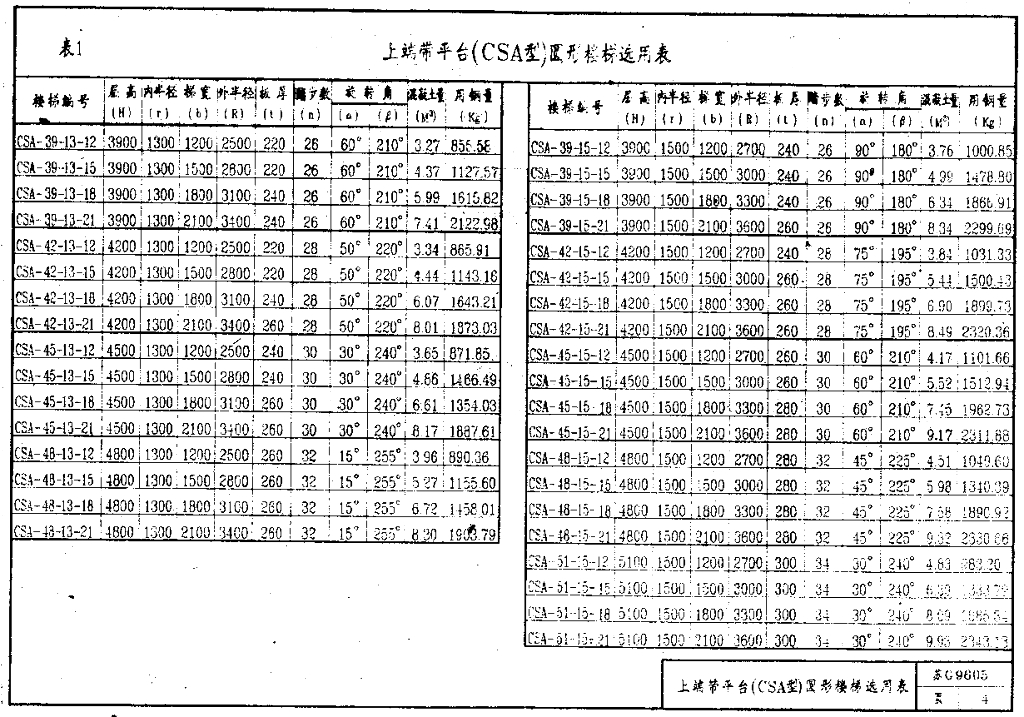 表1
上端带平台(CSA型)圆形楼梯选用表
楼梯编号 层高(H) 内半径(r) 梯宽(b) 外半径(R) 板厚(t) 踏步数(n) 旋转角(α) (β) 混凝土量(M³) 用钢量(Kg)
CSA-39-13-12 3900 1300 1200 2500 220 26 60° 210° 3.27 855.58
CSA-39-13-15 3900 1300 1500 2800 220 26 60° 210° 4.37 1127.57
CSA-39-13-18 3900 1300 1800 3100 240 26 60° 210° 5.99 1615.82
CSA-39-13-21 3900 1300 2100 3400 240 26 60° 210° 7.41 2122.98
CSA-42-13-12 4200 1300 1200 2500 220 28 50° 220° 3.34 865.91
CSA-42-13-15 4200 1300 1500 2800 220 28 50° 220° 4.44 1143.16
CSA-42-13-18 4200 1300 1800 3100 240 28 50° 220° 6.07 1643.21
CSA-42-13-21 4200 1300 2100 3400 260 28 50° 220° 8.01 1873.03
CSA-45-13-12 4500 1300 1200 2500 240 30 30° 240° 3.65 871.85
CSA-45-13-15 4500 1300 1500 2800 240 30 30° 240° 4.86 1166.49
CSA-45-13-18 4500 1300 1800 3100 260 30 30° 240° 6.61 1354.03
CSA-45-13-21 4500 1300 2100 3400 260 30 30° 240° 8.17 1887.61
CSA-48-13-12 4800 1300 1200 2500 260 32 15° 255° 3.96 890.36
CSA-48-13-15 4800 1300 1500 2800 260 32 15° 255° 5.27 1155.60
CSA-48-13-18 4800 1300 1800 3100 260 32 15° 255° 6.72 1458.01
CSA-48-13-21 4800 1300 2100 3400 260 32 15° 255° 8.30 1903.79
楼梯编号 层高(H) 内半径(r) 梯宽(b) 外半径(R) 板厚(t) 踏步数(n) 旋转角(α) (β) 混凝土量(M³) 用钢量(Kg)
CSA-39-15-12 3900 1500 1200 2700 240 26 90° 180° 3.76 1000.85
CSA-39-15-15 3900 1500 1500 3000 240 26 90° 180° 4.99 1478.80
CSA-39-15-18 3900 1500 1800 3300 240 26 90° 180° 6.34 1866.91
CSA-39-15-21 3900 1500 2100 3600 260 26 90° 180° 8.34 2299.69
CSA-42-15-12 4200 1500 1200 2700 240 28 75° 195° 3.84 1031.33
CSA-42-15-15 4200 1500 1500 3000 260 28 75° 195° 5.44 1500.43
CSA-42-15-18 4200 1500 1800 3300 260 28 75° 195° 6.90 1899.73
CSA-42-15-21 4200 1500 2100 3600 260 28 75° 195° 8.49 2320.36
CSA-45-15-12 4500 1500 1200 2700 260 30 60° 210° 4.17 1101.66
CSA-45-15-15 4500 1500 1500 3000 260 30 60° 210° 5.52 1512.94
CSA-45-15-18 4500 1500 1800 3300 280 30 60° 210° 7.45 1962.73
CSA-45-15-21 4500 1500 2100 3600 280 30 60° 210° 9.17 2311.88
CSA-48-15-12 4800 1500 1200 2700 280 32 45° 225° 4.51 1049.60
CSA-48-15-15 4800 1500 1500 3000 280 32 45° 225° 5.98 1340.39
CSA-48-15-18 4800 1500 1800 3300 280 32 45° 225° 7.58
CSA-48-15-21 4800 1500 2100 3600 280 32 45° 225°
CSA-51-15-12 5100 1500 1200 2700 300 34 30° 240° 4.83
CSA-51-15-15 5100 1500 1500 3000 300 34 30° 240°
CSA-51-15-18 5100 1500 1800 3300 300 34 30° 240°
CSA-51-15-21 5100 1500 2100 3600 300 34 30° 240°
上端带平台(CSA型)圆形楼梯选用表
苏G9605
页 4